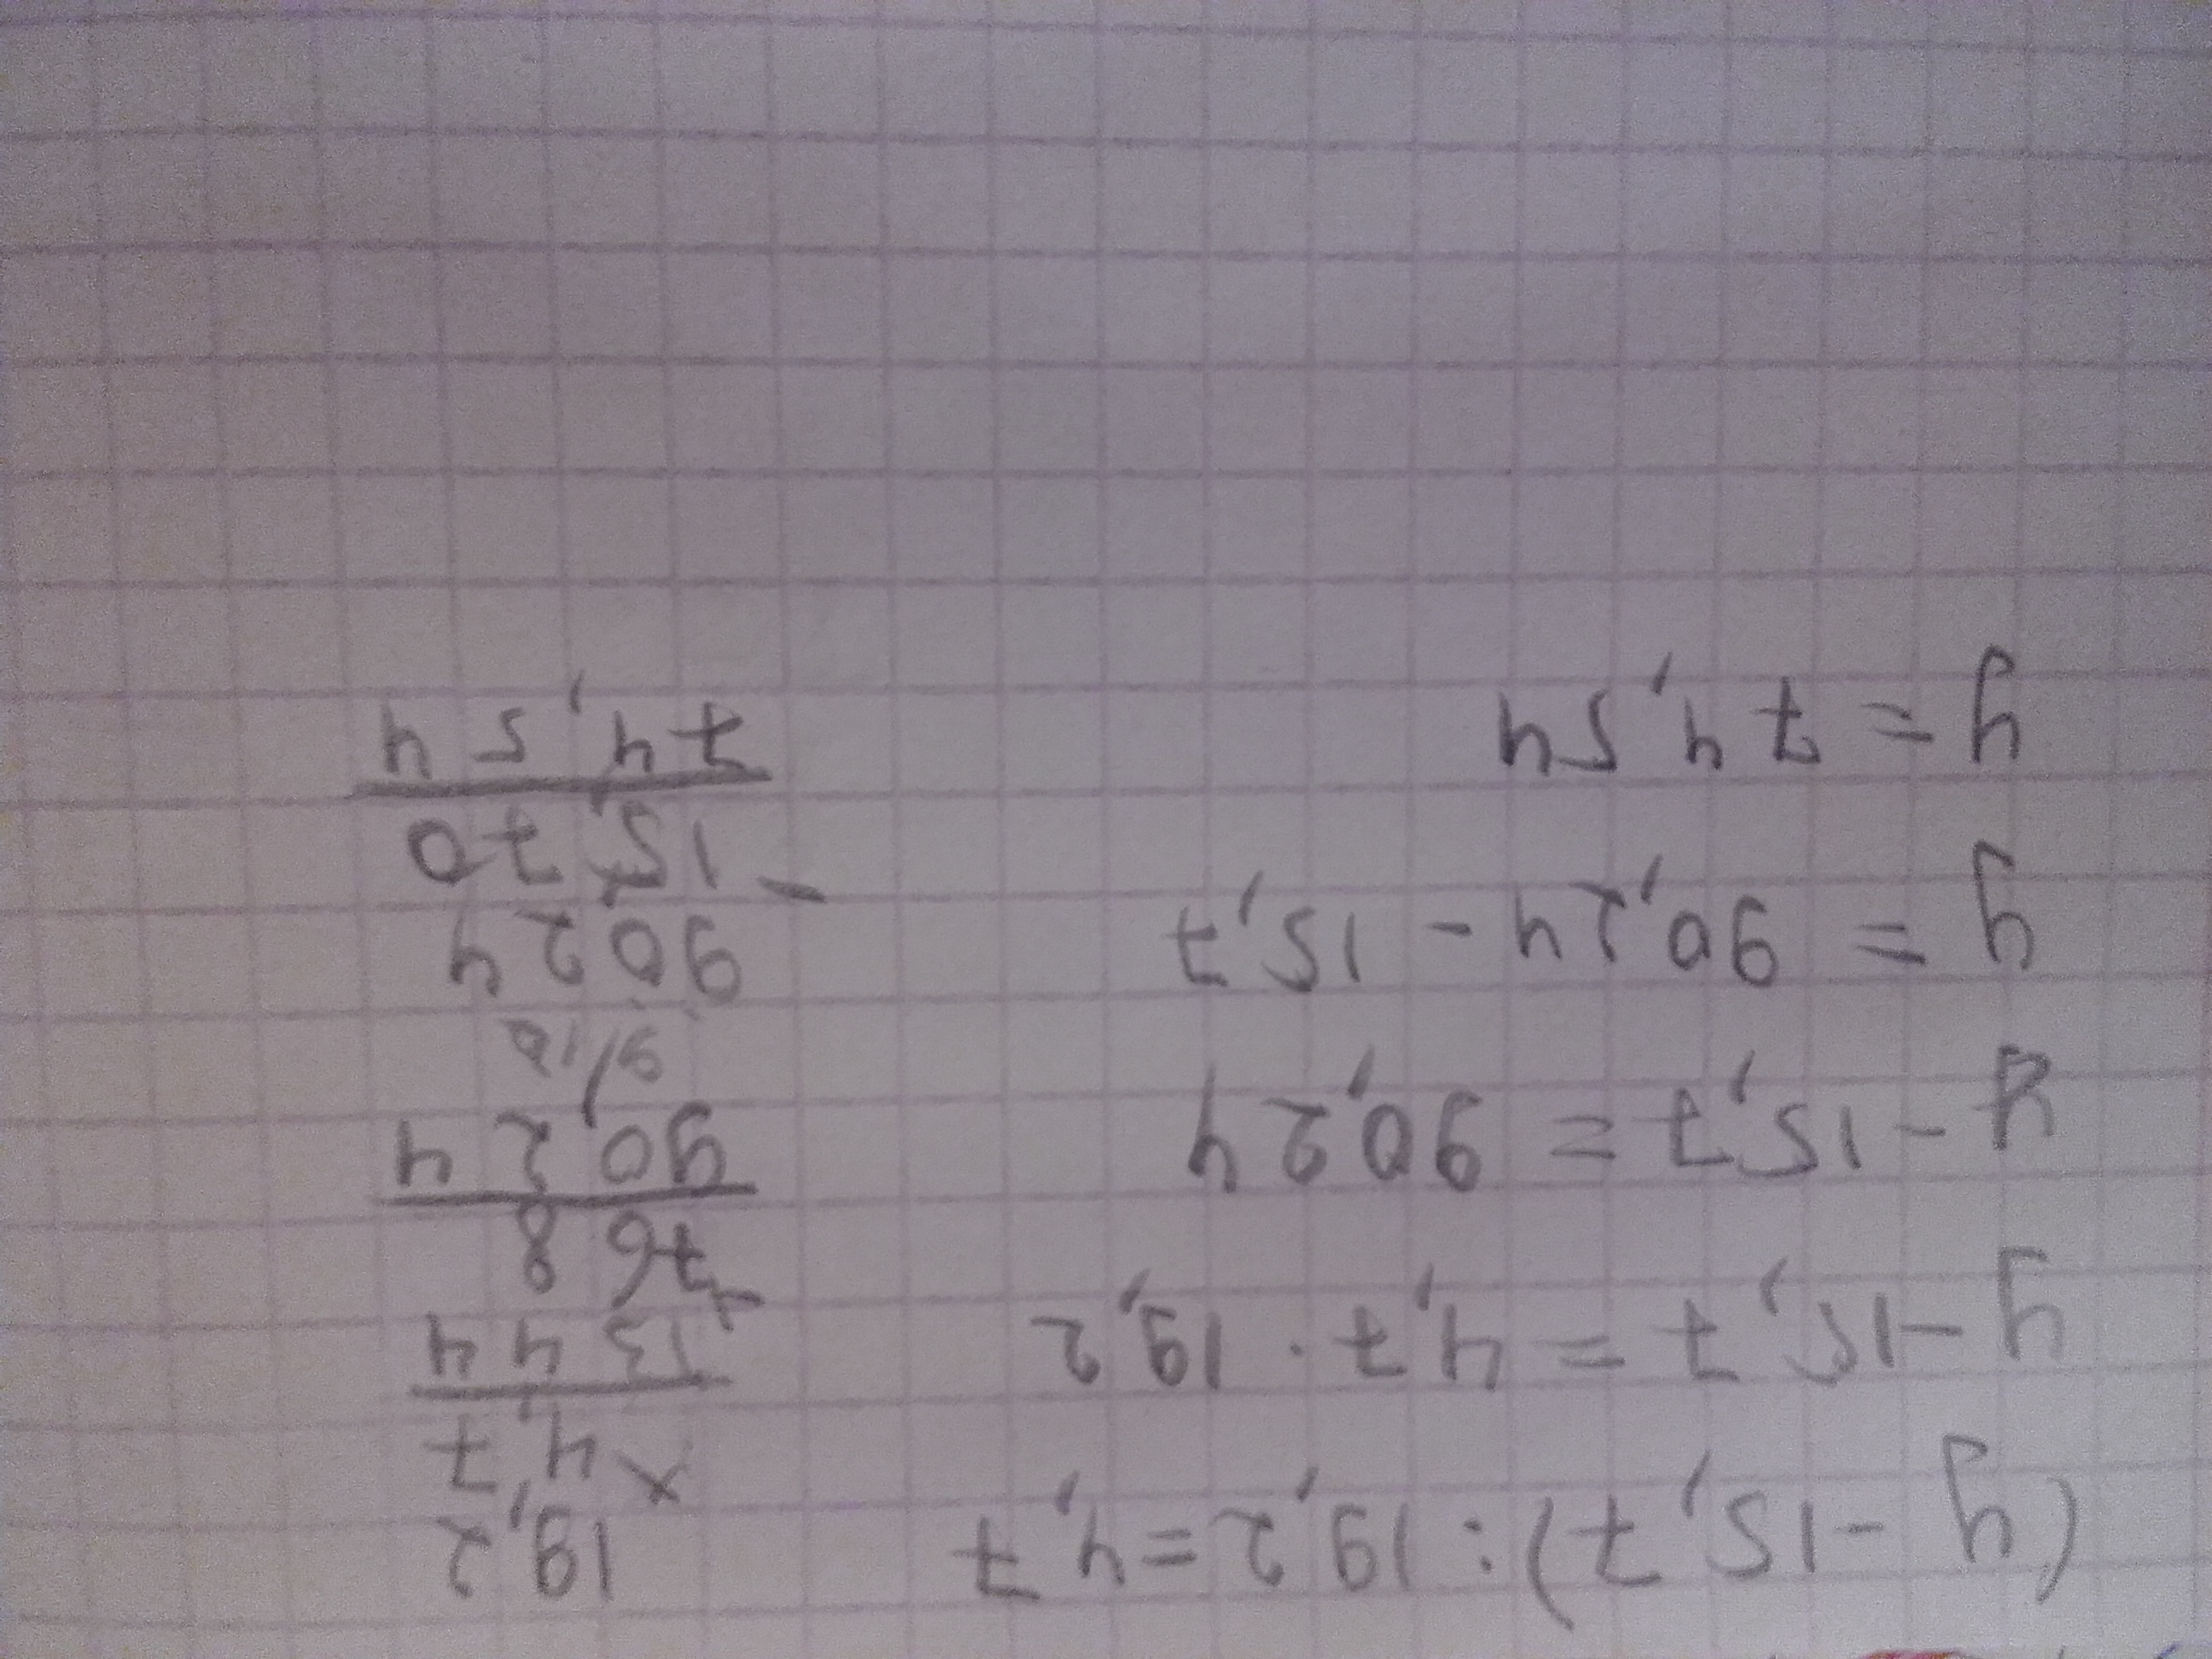 (y - 15,7) : 19,2 = 4,7
y - 15,7 = 4,7 · 19,2
y - 15,7 = 90,24
y = 90,24 - 15,7
y = 74,54
19,2
× 4,7
1344
+ 768
90,24
9/10
90,24
- 15,70
74,54